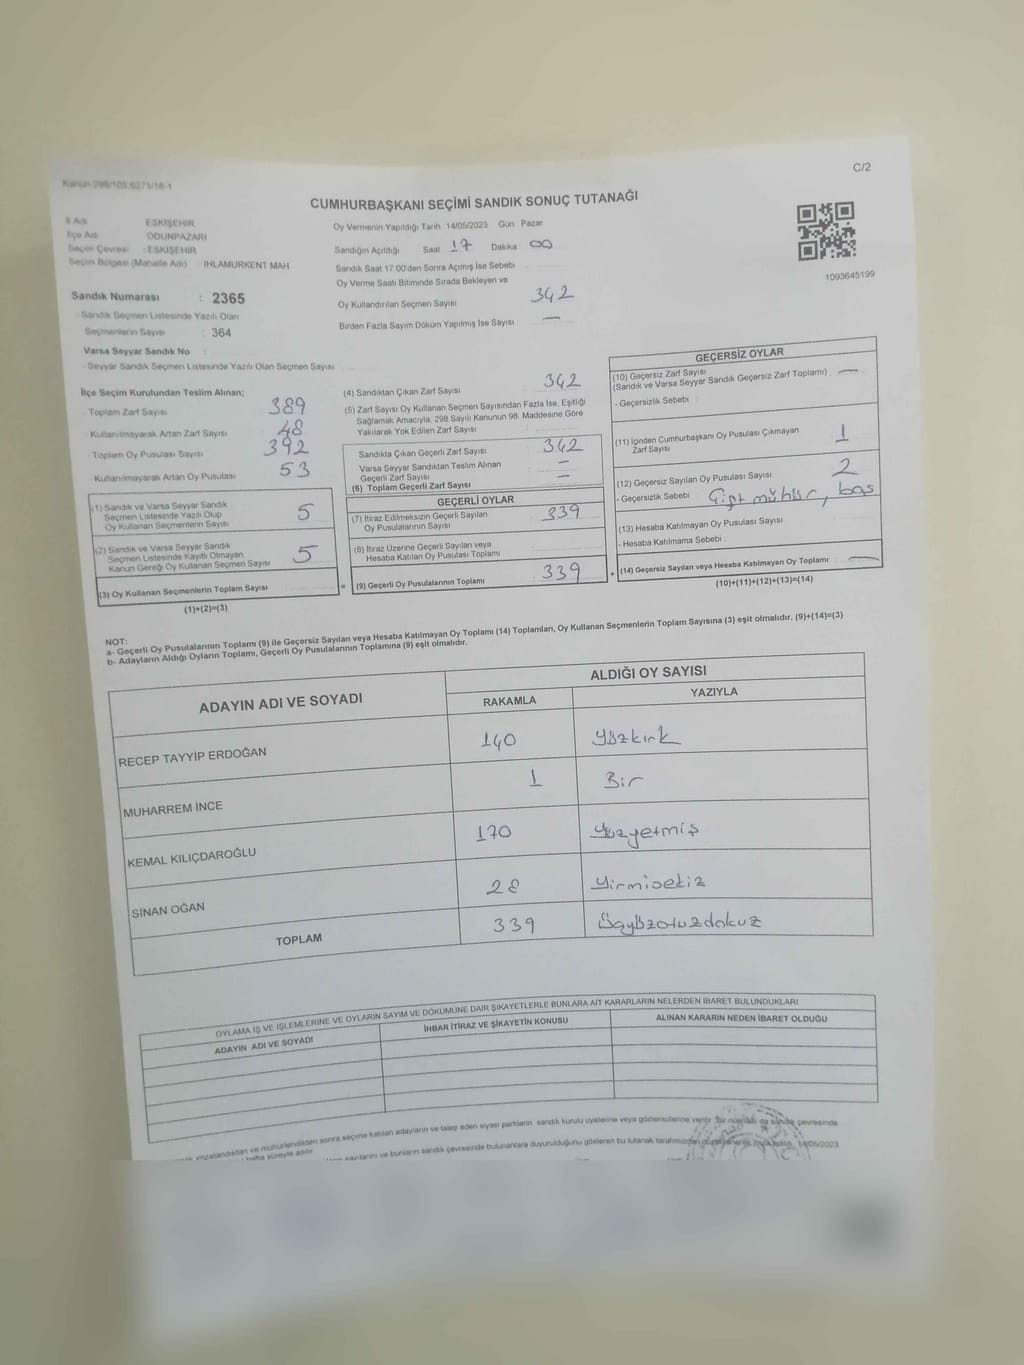 Kanun 298/103;6271/18-1
C/2
CUMHURBAŞKANI SEÇİMİ SANDIK SONUÇ TUTANAĞI
İl Adı ESKİŞEHİR
İlçe Adı ODUNPAZARI
Seçim Çevresi : ESKİŞEHİR
Seçim Bölgesi (Mahalle Adı) IHLAMURKENT MAH.
Sandık Numarası : 2365
Sandık Seçmen Listesinde Yazılı Olan
Seçmenlerin Sayısı : 364
Varsa Seyyar Sandık No :
- Seyyar Sandık Seçmen Listesinde Yazılı Olan Seçmen Sayısı
Oy Vermenin Yapıldığı Tarih 14/05/2023 Gün Pazar
Sandığın Açıldığı Saat 17 Dakika 00
Sandık Saat 17:00'den Sonra Açımış İse Sebebi
Oy Verme Saati Bitiminde Sırada Bekleyen ve
Oy Kullandırılan Seçmen Sayısı 342
Birden Fazla Sayım Döküm Yapılmış İse Sayısı —
1093645199
İlçe Seçim Kurulundan Teslim Alınan;
- Toplam Zarf Sayısı 389
- Kullanılmayarak Artan Zarf Sayısı 48
- Toplam Oy Pusulası Sayısı 392
- Kullanılmayarak Artan Oy Pusulası 53
(1) Sandık ve Varsa Seyyar Sandık
Seçmen Listesinde Yazılı Olup
Oy Kullanan Seçmenlerin Sayısı 5
(2) Sandık ve Varsa Seyyar Sandık
Seçmen Listesinde Kayıtlı Olmayan
Kanun Gereği Oy Kullanan Seçmen Sayısı 5
(3) Oy Kullanan Seçmenlerin Toplam Sayısı
(1)+(2)=(3)
=
(4) Sandıktan Çıkan Zarf Sayısı 342
(5) Zarf Sayısı Oy Kullanan Seçmen Sayısından Fazla İse, Eşitliği
Sağlamak Amacıyla, 298 Sayılı Kanunun 98. Maddesine Göre
Yakılarak Yok Edilen Zarf Sayısı
Sandıkta Çıkan Geçerli Zarf Sayısı 342
Varsa Seyyar Sandıktan Teslim Alınan
Geçerli Zarf Sayısı —
(6) Toplam Geçerli Zarf Sayısı —
GEÇERLİ OYLAR
(7) İtiraz Edilmeksizin Geçerli Sayılan
Oy Pusulalarının Sayısı 339
(8) İtiraz Üzerine Geçerli Sayılan veya
Hesaba Katılan Oy Pusulası Toplamı
(9) Geçerli Oy Pusulalarının Toplamı : 339
+
GEÇERSİZ OYLAR
(10) Geçersiz Zarf Sayısı
(Sandık ve Varsa Seyyar Sandık Geçersiz Zarf Toplamı) —
- Geçersizlik Sebebi :
(11) İçinden Cumhurbaşkanı Oy Pusulası Çıkmayan
Zarf Sayısı 1
(12) Geçersiz Sayılan Oy Pusulası Sayısı 2
- Geçersizlik Sebebi : Çift mühür, boş
(13) Hesaba Katılmayan Oy Pusulası Sayısı
- Hesaba Katılmama Sebebi :
(14) Geçersiz Sayılan veya Hesaba Katılmayan Oy Toplamı —
(10)+(11)+(12)+(13)=(14)
NOT:
a- Geçerli Oy Pusulalarının Toplamı (9) ile Geçersiz Sayılan veya Hesaba Katılmayan Oy Toplamı (14) Toplamları, Oy Kullanan Seçmenlerin Toplam Sayısına (3) eşit olmalıdır. (9)+(14)=(3)
b- Adayların Aldığı Oyların Toplamı, Geçerli Oy Pusulalarının Toplamına (9) eşit olmalıdır.
ADAYIN ADI VE SOYADI
ALDIĞI OY SAYISI
RAKAMLA YAZIYLA
RECEP TAYYİP ERDOĞAN 140 Yüzkırk
MUHARREM İNCE 1 Bir
KEMAL KILIÇDAROĞLU 170 Yüzyetmiş
SİNAN OĞAN 28 Yirmisekiz
TOPLAM 339 Üçyüzotuzdokuz
OYLAMA İŞ VE İŞLEMLERİNE VE OYLARIN SAYIM VE DÖKÜMÜNE DAİR ŞİKAYETLERLE BUNLARA AİT KARARLARIN NELERDEN İBARET BULUNDUKLARI
ADAYIN ADI VE SOYADI İHBAR İTİRAZ VE ŞİKAYETİN KONUSU ALINAN KARARIN NEDEN İBARET OLDUĞU
imzalandıktan ve mühürlendikten sonra seçime katılan adayların ve talep eden siyasi partilerin sandık kurulu üyelerine veya gözlemcilerine verilir. Bir nüshası da sandık çevresinde
hafta süreyle asılır.
sayılarını ve bunların sandık çevresinde bulunanlara duyurulduğunu gösteren bu tutanak tarafımızdan 14/05/2023